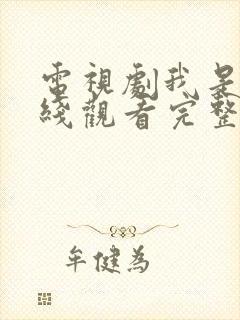 電視劇我是
綫觀看完整
牟健為